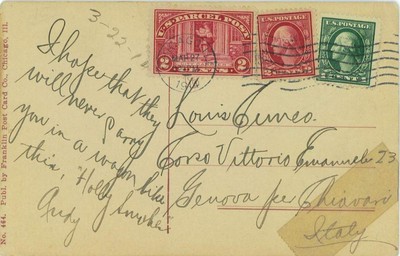 3-22-1
U.S. PARCEL POST
2 CENTS 2
U.S. POSTAGE
U.S. POSTAGE
I hope that they
will never carry
you in a wagon like
this, "Holy Smoke"
Andy
Louis Cuneo.
Corso Vittorio Emanuele 23
Genova per Chiavari
Italy
No. 464. Publ. by Franklin Post Card Co., Chicago, Ill.